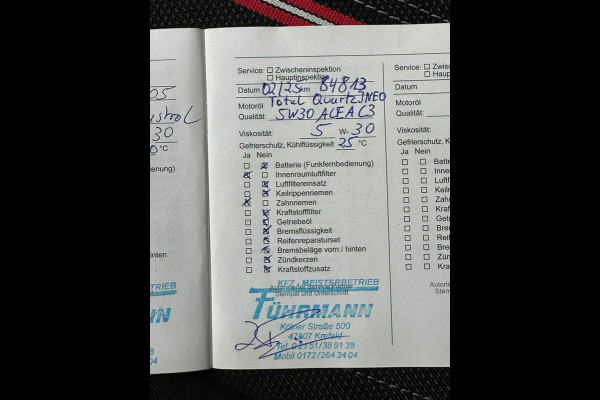 05
30
0°C
nbedienung)
TRIEB
NN
Service: Zwischeninspektion
Hauptinspektion
Datum 02/25 km 84813
Motoröl Total Quartz INEO
Qualität: 5W30 ACEA C3
Viskosität: 5 W- 30
Gefrierschutz, Kühlflüssigkeit 25 °C
Ja Nein
Batterie (Funkfernbedienung)
Innenraumluftfilter
Luftfiltereinsatz
Keilrippenriemen
Zahnriemen
Kraftstofffilter
Getriebeöl
Bremsflüssigkeit
Reifenreparaturset
Bremsbeläge vorn / hinten
Zündkerzen
Kraftstoffzusatz
KFZ - MEISTERBETRIEB
Stempel und Unterschrift
FÜHRMANN
Kölner Straße 500
47807 Krefeld
Tel. 0 21 51 / 38 91 38
Mobil 0172 / 264 34 04
Service: Zwisc
Haup
Datum
Motoröl
Qualität:
Viskosität:
Gefrierschutz, Kü
Ja Nein
Batte
Inne
Luftf
Keilri
Zahn
Kraft
Getri
Brem
Reife
Brem
Zünd
Kraf
Autoris
Stem